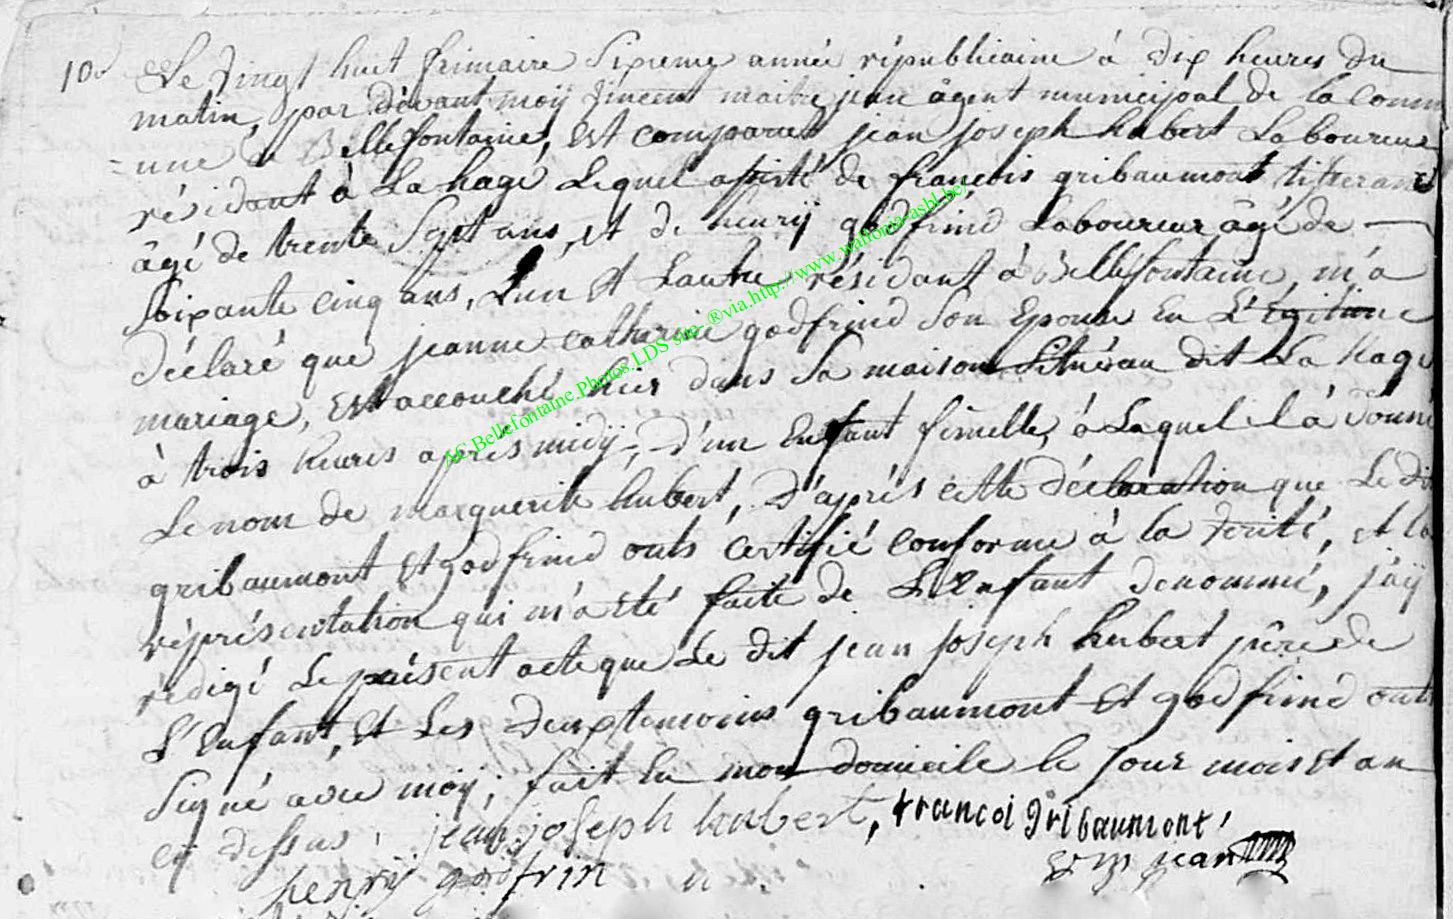 10e Le Vingt huit frimaire Sixieme année républicaine à dix heures du
matin, par dévant moÿ Vincent maitrejean âgent municipal de la comm
=une de Bellefontaine, Est comparut jean joseph hubert Laboureur
résidant à La hage, Lequel assisté de françois gribaumont tisserand
âgé de trente Sept ans, et de henrÿ godfrind Laboureur âgé de
Soixante cinq ans, L'un Et Lautre résidant à Bellefontaine, m'a
déclaré que jeanne catherine godfrind Son Epouse En L'égitime
mariage, Est accouché hier dans Sa maison Situéau dit La hage
à trois heures aprés midÿ, D'un Enfant fémelle, à Laquel il à donné
Le nom de marguerite hubert, D'aprés cette déclaration que Le dit
gribaumont Et godfrind onts certifié conforme à la Vérité, et la
réprésentation qui m'a été faite de L'Enfant dénommé, j'aÿ
rédigé Le présent acte que Le dit jean joseph hubert pére de
L'Enfant, Et Les deux temoins gribaumont Et godfrind onts
Signé avec moÿ, fait En mon domicile le jour mois Et an
cÿ dessus. jean joseph hubert, francoi Gribaumont
henrÿ godfrin V m jean
AC Bellefontaine Photos LDS site ®via.http://www.wallonia-asbl.be